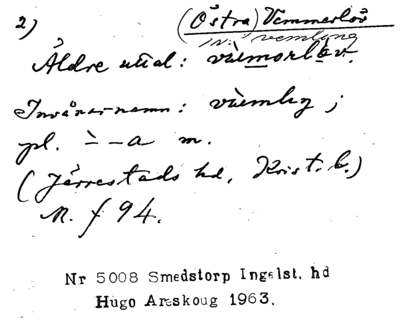 2)
(Östra) Vemmerlöv
Äldre uttal: vìemorlöv.
Invånarnamn: vìemling ;
pl. ̀ - -a m.
(Järrestads hd, Krist. l.)
N. f 94.
Nr 5008 Smedstorp Ingelst. hd
Hugo Areskoug 1963.